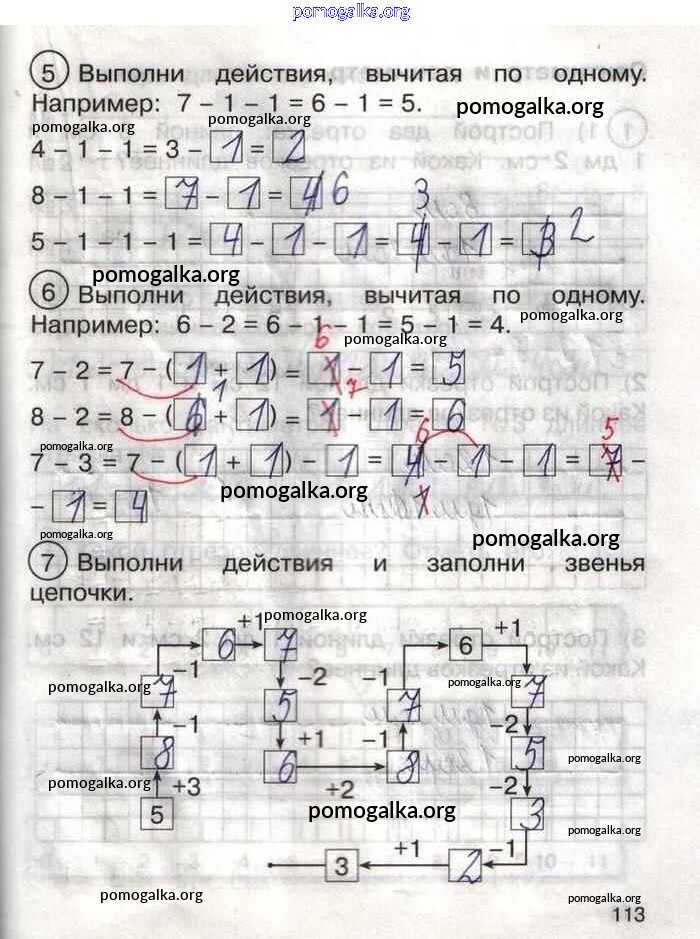 pomogalka.org
5 Выполни действия, вычитая по одному.
Например: 7 – 1 – 1 = 6 – 1 = 5.
pomogalka.org
pomogalka.org
4 – 1 – 1 = 3 – 1 = 2
8 – 1 – 1 = 7 – 1 = 6
3
5 – 1 – 1 – 1 = 4 – 1 – 1 = 4 – 1 = 2
pomogalka.org
6 Выполни действия, вычитая по одному.
Например: 6 – 2 = 6 – 1 – 1 = 5 – 1 = 4.
pomogalka.org
6
pomogalka.org
7 – 2 = 7 – (1 + 1) = 1 – 1 = 5
1 7
8 – 2 = 8 – (6 + 1) = 1 – 1 = 6
6 5
pomogalka.org
7 – 3 = 7 – (1 + 1) – 1 = 4 – 1 – 1 = 7 –
1
pomogalka.org
– 1 = 4
pomogalka.org
pomogalka.org
7 Выполни действия и заполни звенья
цепочки.
+1
pomogalka.org
+1
6 7 6
–1 –2 –1
pomogalka.org
pomogalka.org
7 5 7 7
–1 +1 –1 –2
8 6 8 5
pomogalka.org
pomogalka.org
+3 +2 –2
5 3
pomogalka.org
pomogalka.org
+1 –1
3 2
pomogalka.org
pomogalka.org
113